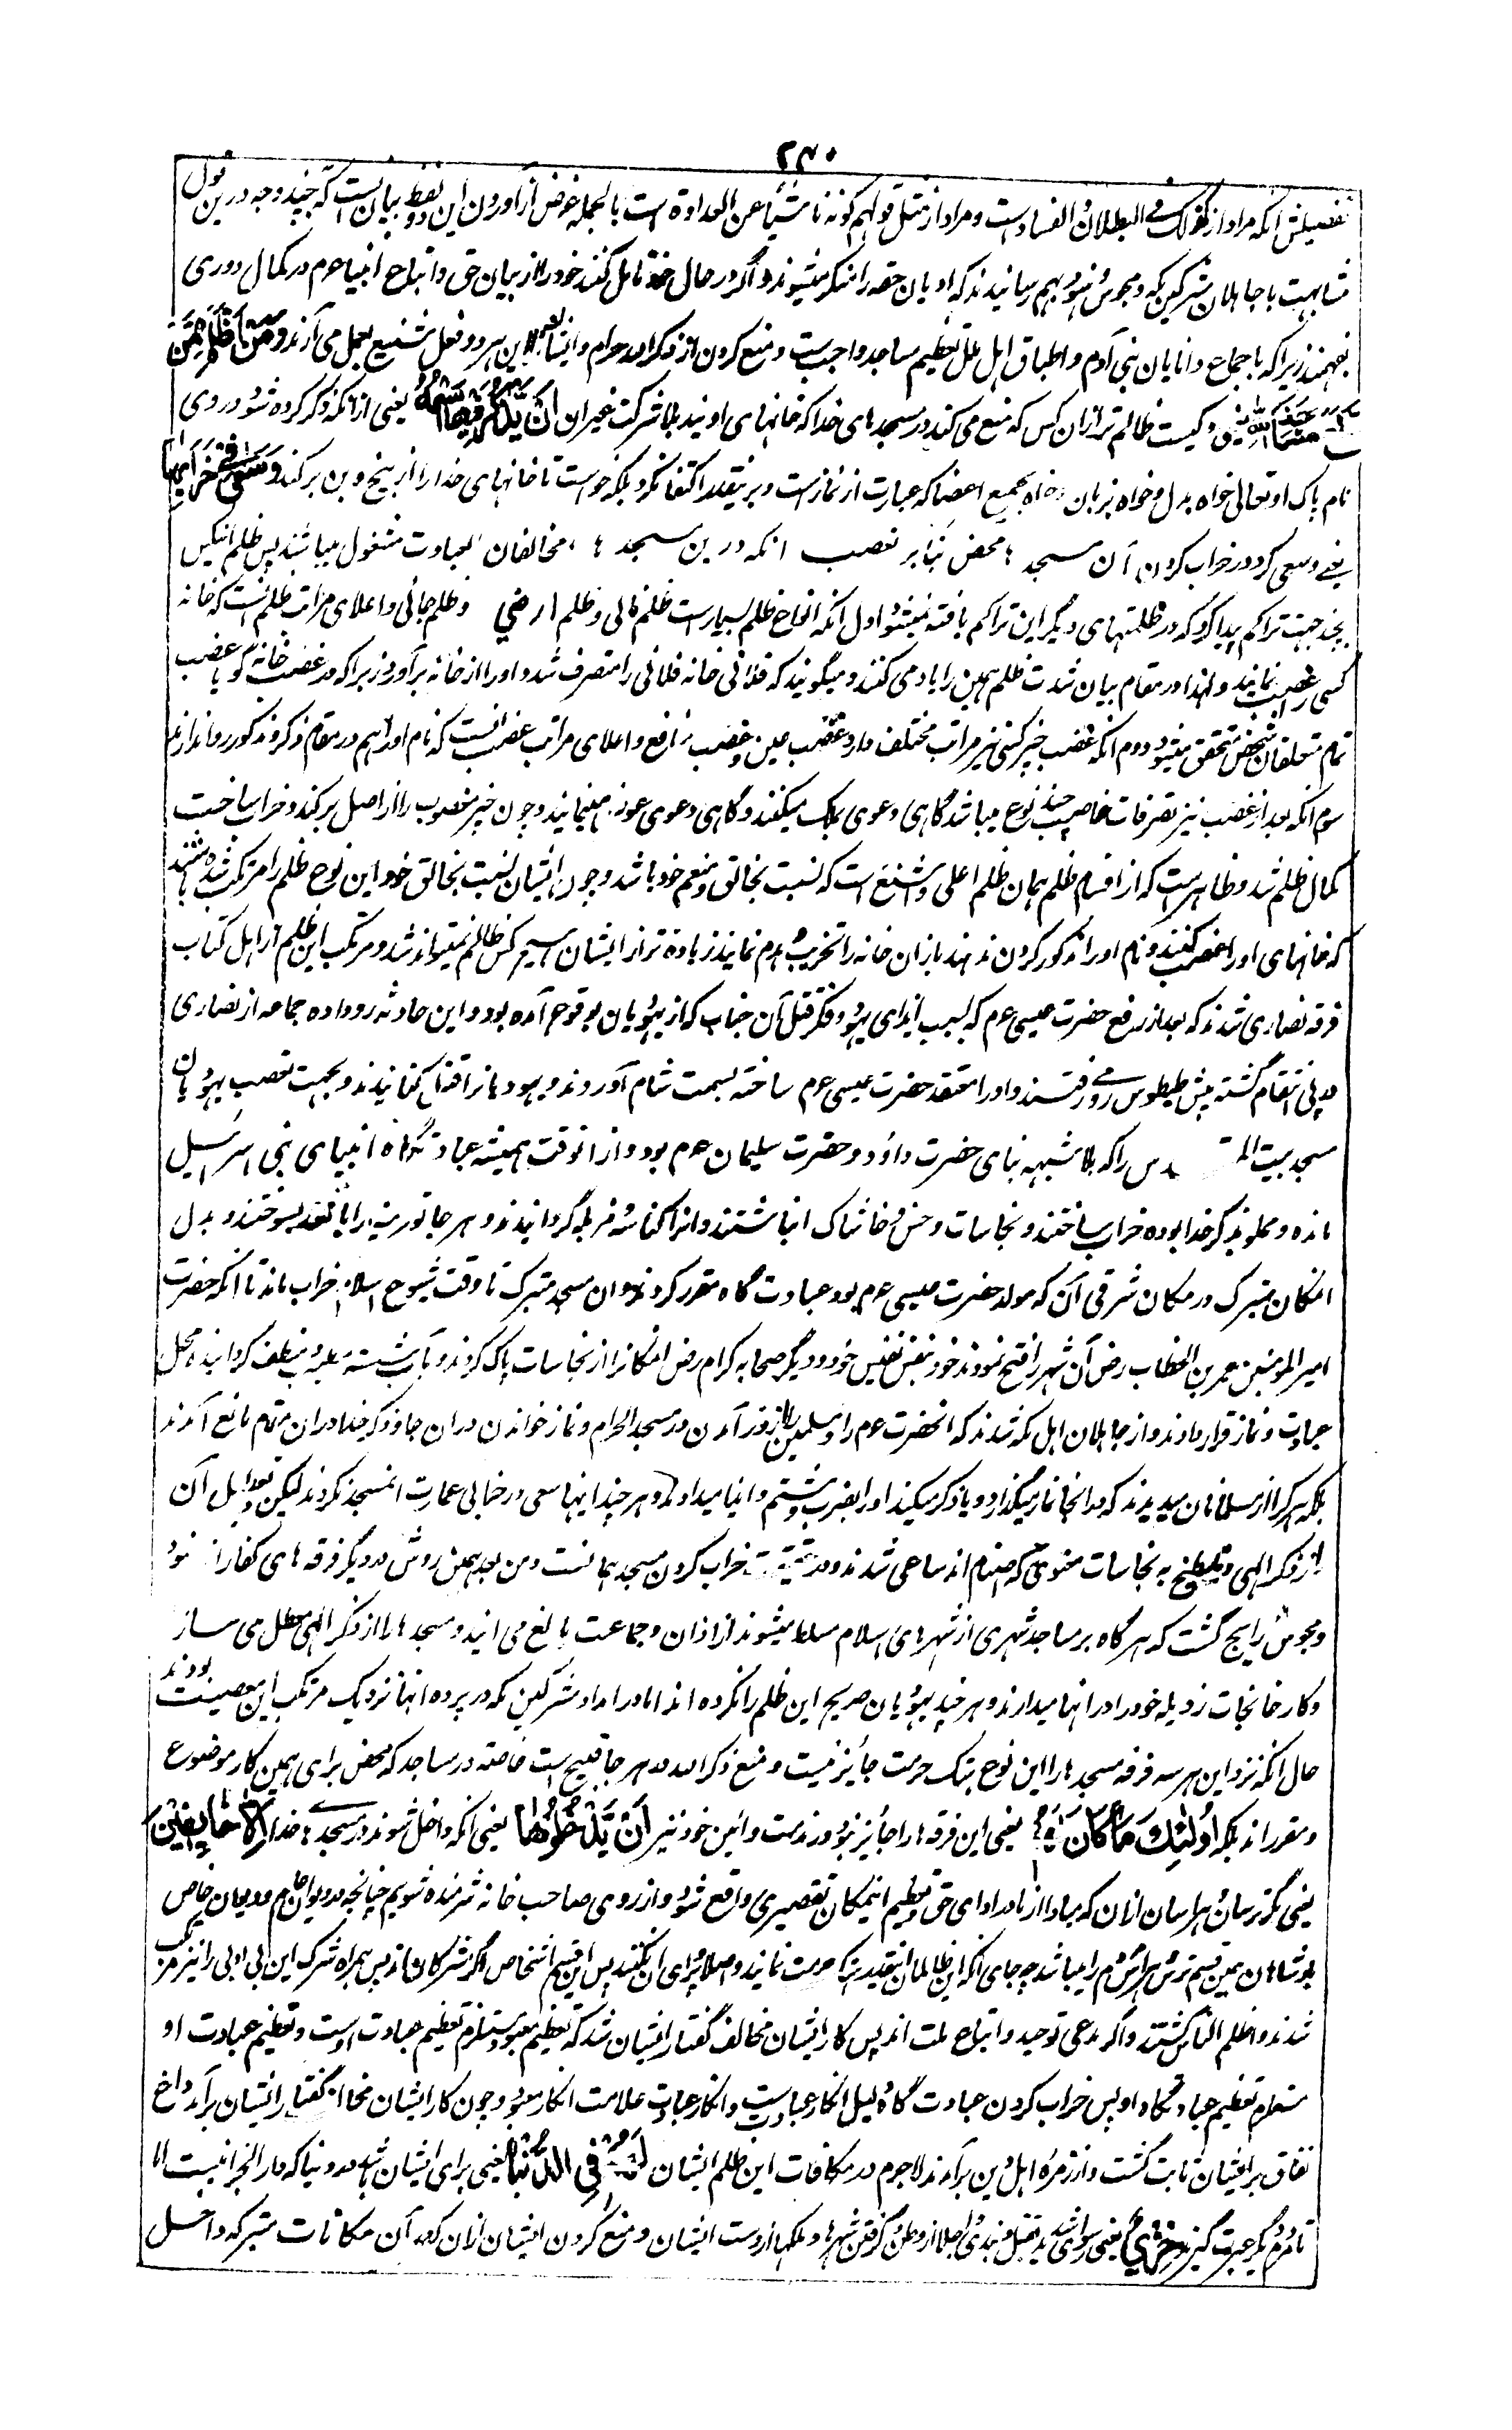 ۲۴۰
تفصیلش آنکه مراد از کذلک فی البطلان و الفساد است و مراد از مثل قولهم کونه ناشئاً عن العداوة است بالجمله غرض از آوردن این دو لفظ بیان است که بچند وجه درین قول
مشابهت با جاهلان مشرکین مکه و مجوس و هنود بهم رسانیدند که ادیان حقه را منکر میشوند و اگر در حال خود تامل کنند خود را از بیان حق و اتباع انبیا عم در کمال دوری
بفهمند زیرا که باجماع دانایان بنی آدم و اطباق اهل ملل تعظیم مساجد واجبست و منع کردن از ذکر الله حرام و ایشان این هر دو فعل شنیع بعمل می آرند وَمَنْ اَظْلَمُ مِمَّنْ
مَنَعَ مَسٰجِدَ اللّٰهِ یعنی و کیست ظالم تر از آن کس که منع می کند در مسجدهای خدا که خانهای اویند بلا شرکت غیر ان اَنْ یُّذْکَرَ فِیْهَا اسْمُهٗ یعنی از آنکه ذکر کرده شود در وی
نام پاک او تعالی خواه بدل و خواه بزبان و خواه بجمیع اعضا که عبارت از نماز است و برینقدر اکتفا نکرد بلکه خواست تا خانهای خدا را از بیخ و بن برکند وَسَعٰی فِیْ خَرَابِهَا
یعنے و سعی کرد در خراب کردن آن مسجد ها محض بنا بر تعصب آنکه درین مسجد ها مخالفان بعبادت مشغول میباشند پس ظلم اینکس
بچند جهت تراکم پیدا کرد که در ظلمتهای دیگر این تراکم یافته نمیشود اول آنکه انواع ظلم بسیار است ظلم مالی و ظلم ارضی و ظلم جانی و اعلای مراتب ظلم آنست که خانه
کسی را غصب نمایند و لهذا در مقام بیان شدت ظلم همین را یاد می کنند و میگویند که فلانی خانه فلانی را متصرف شد و او را از خانه برآورد زیرا که در غصب خانه گویا غصب
تمام متعلقات شخص متحقق میشود دوم آنکه غصب چیز کسی نیز مراتب مختلف دارد غصب عین و غصب منافع و اعلای مراتب غصب آنست که نام او را هم در مقام ذکر مذکور روا ندارند
سوم آنکه بعد از غصب نیز تصرفات غاصب چند نوع میباشد گاهی دعوی ملک میکنند و گاهی دعوی عوض مینمایند و چون چیز مغصوب را از اصل برکند و خراب ساخت
کمال ظلم شد و ظاهر است که از اقسام ظلم همان ظلم اعلی و اشنع است که نسبت بخالق و منعم خود باشد و چون ایشان نسبت بخالق خود این نوع ظلم را مرتکب شده باشند
که خانهای او را غصب کنند و نام او را مذکور کردن ندهند باز آن خانه را تخریب و هدم نمایند زیاده تر از ایشان هیچ کس ظالم نمیتواند شد و مرتکب این ظلم از اهل کتاب
فرقه نصاری شدند که بعد از رفع حضرت عیسی عم که بسبب ایذای یهود و فکر قتل آن جناب که از یهودیان بوقوع آمده بود و این حادثه رو داده جماعه از نصاری
در پی انتقام گشته پیش طیطوس رومی رفتند و او را معتقد حضرت عیسی عم ساخته بسمت شام آوردند و یهود را از و قتل کنانیدند و بجهت تعصب یهودیان
مسجد بیت المقدس را که بلا شبهه بنای حضرت داؤد و حضرت سلیمان عم بود و از انوقت همیشه عبادتگاه انبیای بنی اسرائیل
مانده و مملو بذکر خدا بوده خراب ساختند و نجاسات و خس و خاشاک انباشتند و انرا کناسه و مزبله گردانیدند و هر جا توریت را یافتند بسوختند و بدل
امکان متبرک در مکان شرقی آن که مولد حضرت عیسی عم بود عبادت گاه مقرر کردند و آن مسجد متبرک تا وقت شیوع اسلام خراب ماند تا آنکه حضرت
امیر المومنین عمر بن الخطاب رض آن شهر را فتح نمودند خود بنفس نفیس خود و دیگر صحابه کرام رض امکان را از نجاسات پاک کردند و بآب شسته نظیف گردانیده محل
عبادت و نماز قرار دادند و از جاهلان اهل مکه شدند که آنحضرت عم را و مسلمین را از در آمدن در مسجد الحرام و نماز خواندن در ان جا و ذکر خدا در ان مقام مانع آمدند
بلکه هر کرا از مسلمانان میدیدند که در انجا نماز میگذارد و یا ذکر میکند او را بضرب و شتم و ایذا میدادند و هر چند اینها سعی در خرابی عمارت انمسجد نکردند لیکن در تعطیل آن
از ذکر الهی و تلطیخ به نجاسات معنوی که اصنام اند ساعی شدند و در حقیقت خراب کردن مسجد همانست و من بعد همین روش در دیگر فرقه های کفار از هنود
و مجوس رایج گشت که هر گاه بر مساجد شهری از شهرهای اسلام مسلط میشوند از اذان و جماعت مانع می ایند و مسجدها را از ذکر الهی معطل می سازند
و کارخانجات رذیله خود را در انها میدارند و هر چند یهودیان صریح این ظلم را نکرده اند اما در امداد مشرکین مکه در پرده انها نزدیک مرتکب این معصیت بودند
حال آنکه نزد این هر سه فرقه مسجدها را این نوع هتک حرمت جائز نیست و منع ذکر الله در هر جا قبیح است خاصة در مساجد که محض برای همین کار موضوع
و مقرر اند بلکه اُولٰئِکَ مَا کَانَ لَهُمْ یعنی این فرقه ها را جائز نبود در مذهب و آئین خود نیز اَنْ یَّدْخُلُوْهَا یعنی آنکه داخل شوند در مسجدهای خدا اِلَّا خَائِفِیْنَ
یعنی مگر ترسان و هراسان ازان که مبادا از ما در ادای حق تعظیم اینمکان تقصیری واقع شود و از روی صاحب خانه شرمنده شویم چنانچه در دیوان عام و دیوان خاص
بادشاهان همین قسم ترس و هراس مردم را میباشد چه جای آنکه این ظالمان اینقدر هتک حرمت نمایند و اصلا پروای ان نکنند پس این قسم اشخاص اگر مشرکان اند پس همراه شرک این بی ادبی را نیز مرتکب
شدند و اظلم الناس گشتند و اگر مدعی توحید و اتباع ملت اند پس کار ایشان مخالف گفتار ایشان شد که تعظیم معبود مستلزم تعظیم عبادت اوست و تعظیم عبادت او
مستلزم تعظیم عبادتگاه او پس خراب کردن عبادت گاه دلیل انکار عبادتست و انکار عبادت علامت انکار معبود و چون کار ایشان مخالف گفتار ایشان برآمد داغ
نفاق بر ایشان ثابت گشت و از زمره اهل دین برآمدند لاجرم در مکافات این ظلم ایشان لَهُمْ فِی الدُّنْیَا یعنی برای ایشان باشد در دنیا که دار الجزا نیست الا
تا مردم دیگر عبرت گیرند خِزْیٌ یعنی رسوائی شدید بقتل و بندی و اجلا از وطن و گرفتن شهرها و ملکها از دست ایشان و منع کردن ایشان ازان که در آن مکانات متبرکه داخل